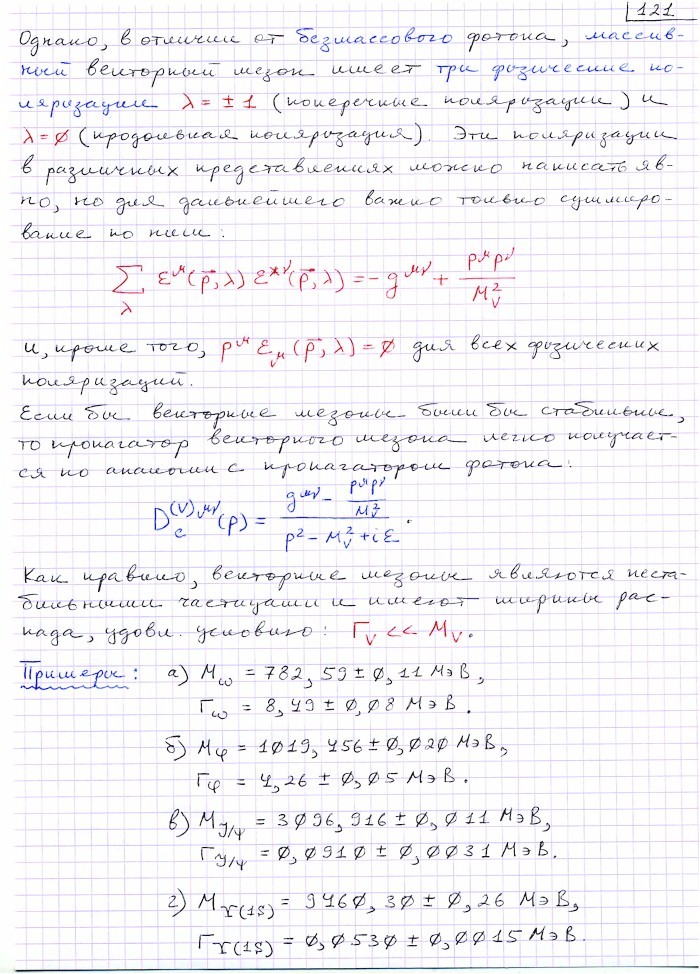 121
Однако, в отличии от безмассового фотона, массив-
ный векторный мезон имеет три физические по-
ляризации λ = ± 1 (поперечные поляризации) и
λ = 0 (продольная поляризация). Эти поляризации
в различных представлениях можно написать яв-
но, но для дальнейшего важно только суммиро-
вание по ним:
∑_λ ε^μ(p⃗, λ) ε^{*ν}(p⃗, λ) = − g^{μν} + p^μ p^ν / M_V^2
и, кроме того, p^μ ε_μ(p⃗, λ) = 0 для всех физических
поляризаций.
Если бы векторные мезоны были бы стабильные,
то пропагатор векторного мезона легко получает-
ся по аналогии с пропагатором фотона:
D_c^{(V) μν}(p) = (g^{μν} − p^μ p^ν / M_V^2) / (p^2 − M_V^2 + iε).
Как правило, векторные мезоны являются неста-
бильными частицами и имеют ширины рас-
пада, удовл. условию: Γ_V << M_V.
Примеры: а) M_ω = 782,59 ± 0,11 МэВ,
Γ_ω = 8,49 ± 0,08 МэВ.
б) M_φ = 1019,456 ± 0,020 МэВ,
Γ_φ = 4,26 ± 0,05 МэВ.
в) M_{J/ψ} = 3096,916 ± 0,011 МэВ,
Γ_{J/ψ} = 0,0910 ± 0,0031 МэВ.
г) M_{Υ(1S)} = 9460,30 ± 0,26 МэВ,
Γ_{Υ(1S)} = 0,0530 ± 0,0015 МэВ.